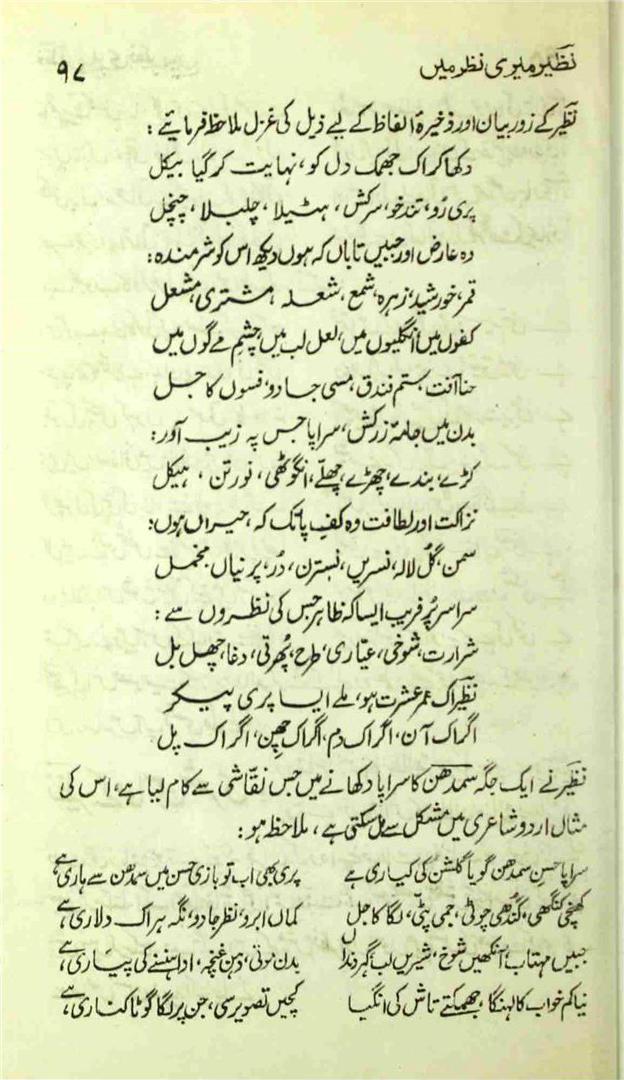 نظیر میری نظر میں
۹۷
نظیر کے زور بیان اور ذخیرۂ الفاظ کے لیے ذیل کی غزل ملاحظہ فرمائیے :
دکھا کر اک جھمک دل کو، نہایت کر گیا بیکل
پری رُو، تند خو، سرکش، ہٹیلا، چلبلا، چنچل
وہ عارض اور جبیں تاباں کہ ہوں دیکھ اس کو شرمندہ :
قمر، خورشید، زہرہ، شمع، شعلہ، مشتری، مشعل
کفوں میں، انگلیوں میں، لعل لب میں، چشمِ مے گوں میں
حنا آفت، ستم فندق، مسی جادو، فسوں کاجل
بدن میں جامۂ زرکش، سراپا جس پہ زیب آور :
کڑے، بندے، چھڑے، چھلّے، انگوٹھی، نورتن، ہیکل
نزاکت اور لطافت وہ کفِ پا تک کہ، حیراں ہوں :
سمن، گل، لالہ، نسریں، نسترن، دُر، پرنیاں، مخمل
سراسر پُر فریب ایسا کہ ظاہر جس کی نظروں سے :
شرارت، شوخی، عیّاری، طرح، پھُرتی، دغا، چھل بل
نظیر اک عمر عشرت ہو، ملے ایسا پری پیکر
اگر اک آن، اگر اک دم، اگر اک چھِن، اگر اک پل
نظیر نے ایک جگہ سمدھن کا سراپا دکھانے میں جس نقّاشی سے کام لیا ہے، اس کی
مثال اردو شاعری میں مشکل سے مل سکتی ہے، ملاحظہ ہو :
سراپا حسنِ سمدھن گویا گلشن کی کیاری ہے پری بھی اب تو بازی حسن میں سمدھن سے ہاری ہے
کھنچی کنگھی، گندھی چوٹی، جمی پٹّی، لگا کاجل کماں ابرو، نظر جادو، نگہ ہر اک دلاری ہے
جبیں مہتاب، آنکھیں شوخ، شیریں لب، گہر دنداں بدن موتی، دہن غنچہ، ادا ہنسنے کی پیاری ہے
نیا کم خواب کا لہنگا، جھمکتے تاش کی انگیا کچیں تصویر سی، جن پر لگا گوٹا کناری ہے